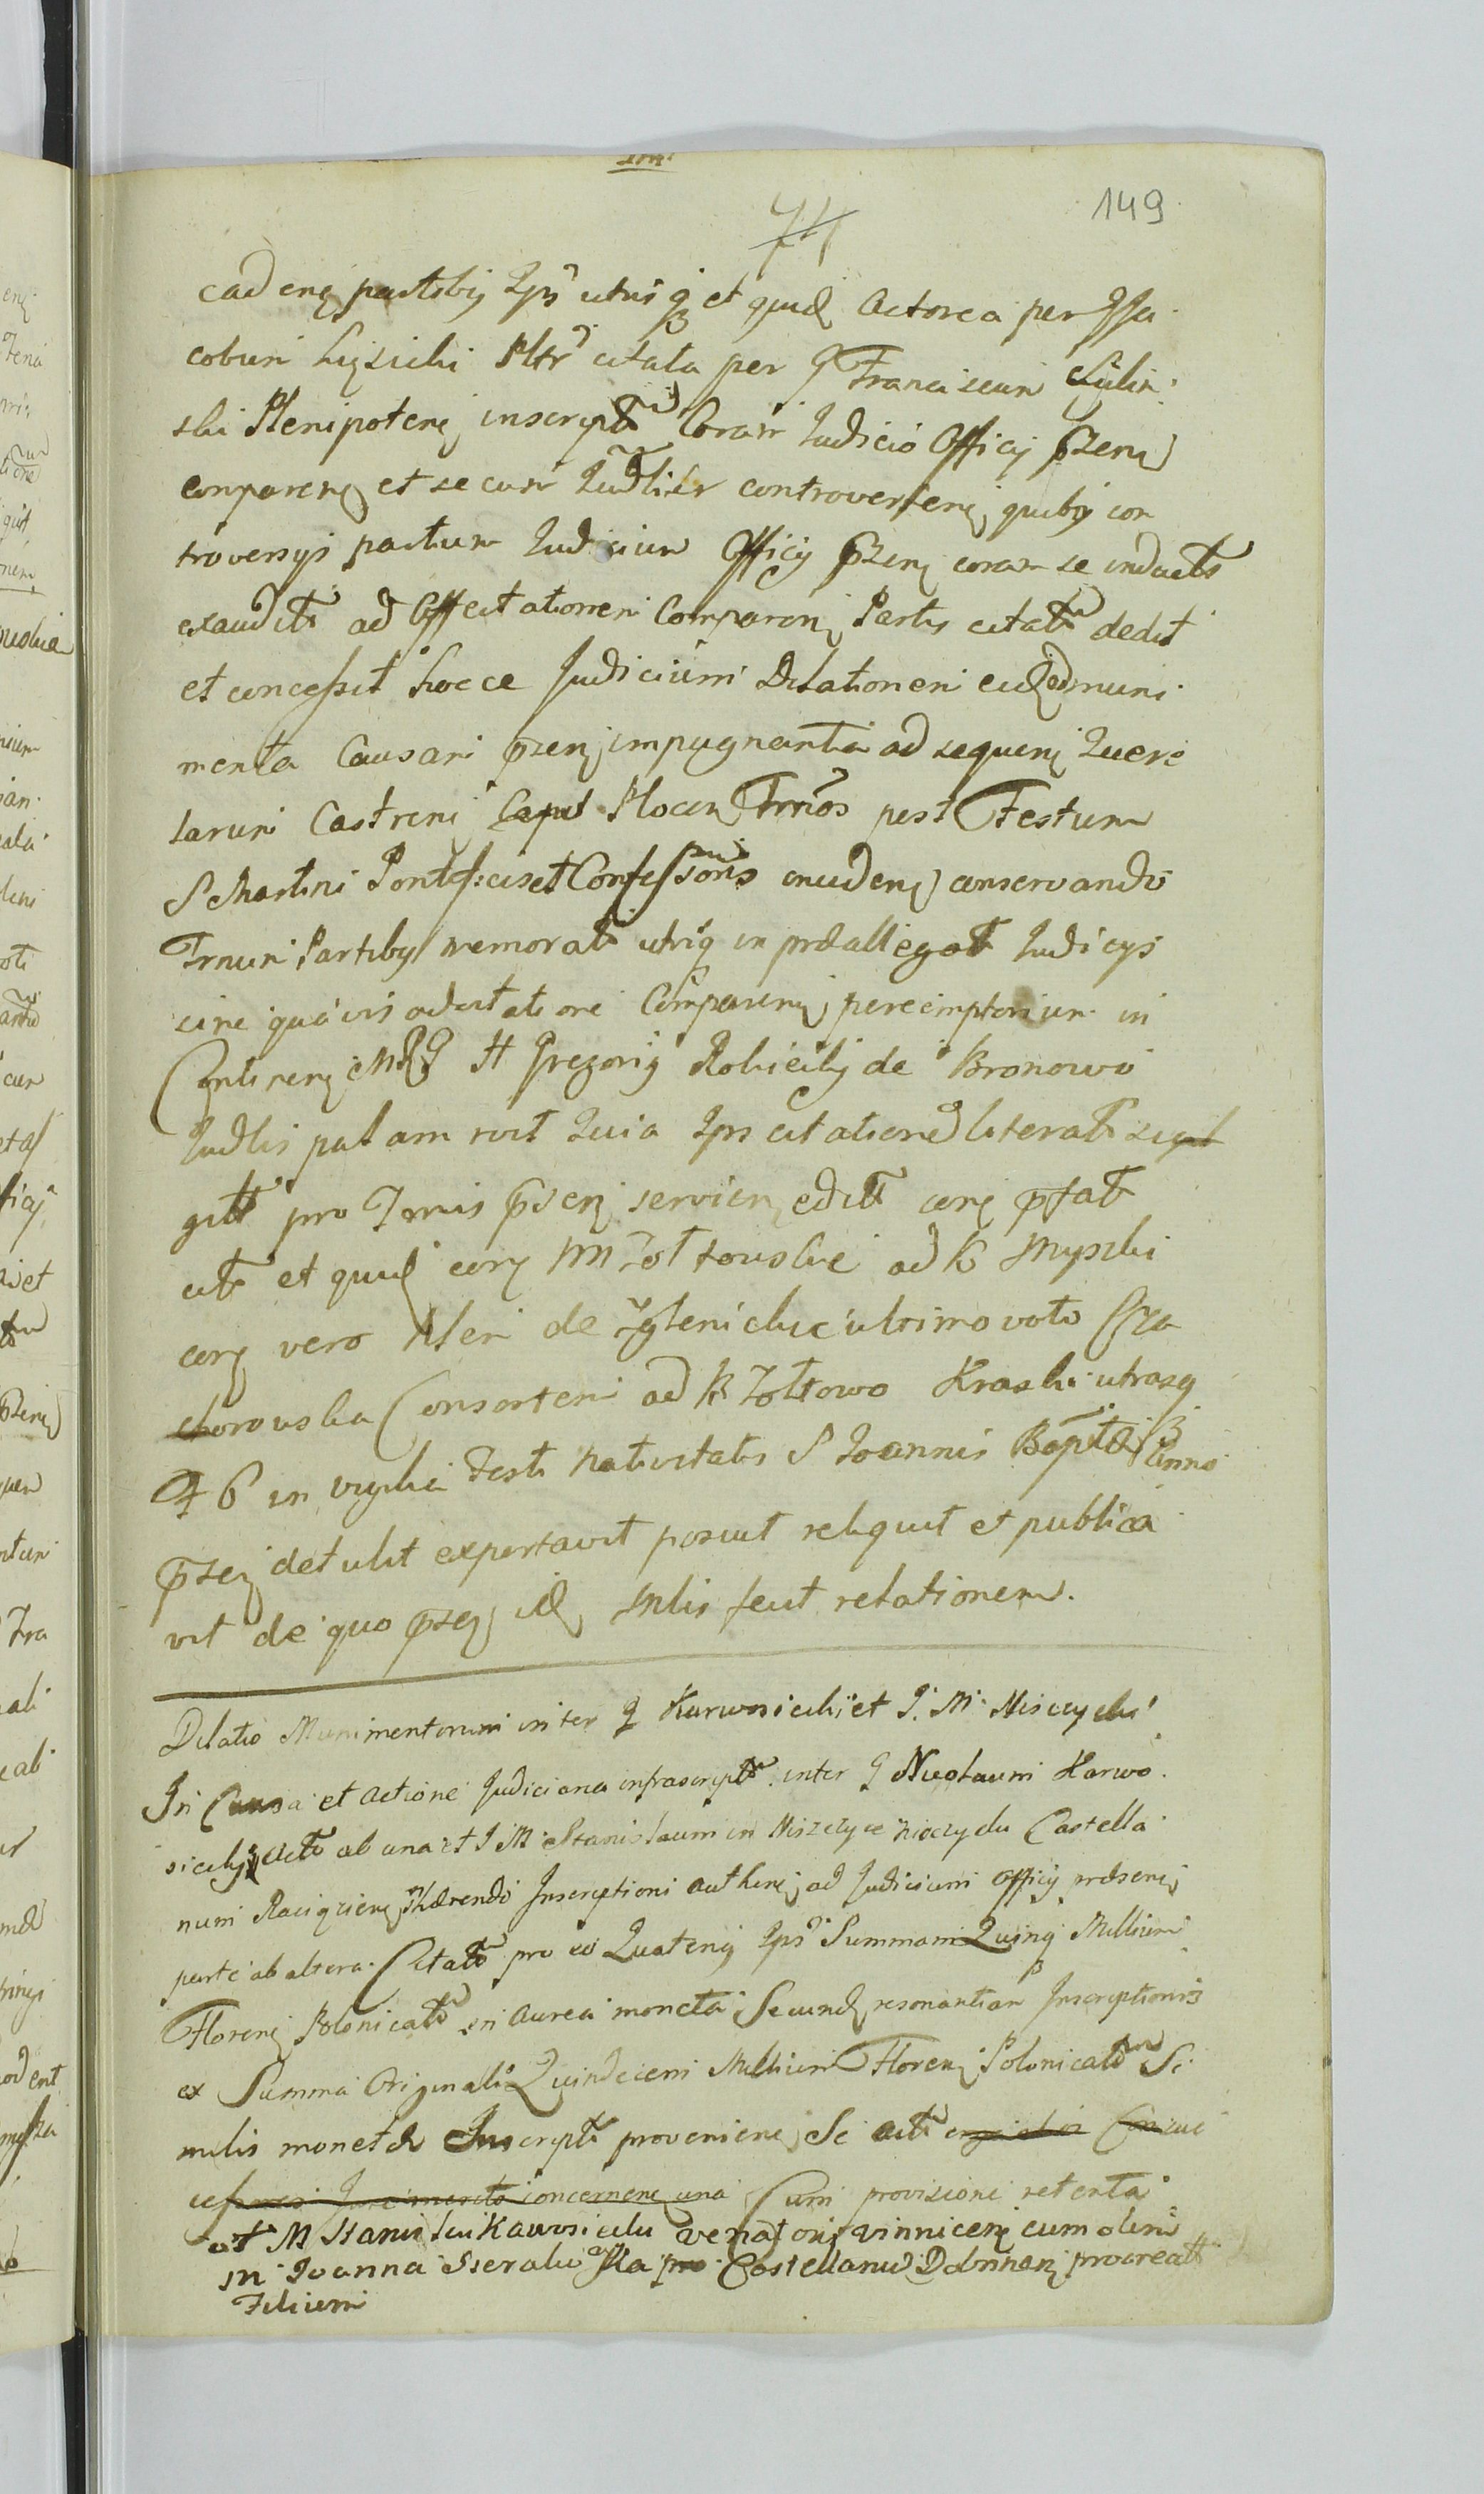 149
74
caden partiby Ips utrisq et quid Actorea per G Ja
cobum citata per G Franciscum
ski Plenipoten inscript Coram Judicio Officij pzen
comparen et secum Judlier controverten quiby con
troversijs partium Judicium Officij pzen coram se inductis
exaudit ad Affectationem Comparen Partis citat dedit
et concessit hocce Judicium Dilationem eid ad muni
menta Causam pzen impugnantia ad sequen Quere
larum Castren Capit Plocen Trnos post Festum
S Martini Pontificis et Confessoris inciden conservando
Trnum Partiby memorat utriq in præallegat Judicys
sine quavis adcitatione Comparen peremptorium in
Continen MRG H Gregorig de Bronowo
Judlis palam rvit Quia Ips citatione literat sigil
git pro Trmis pzen servien edit cen pfat
cit et quid cen M Zoltowskie ad B Myszki
cen vero Men de Zglenickie ultimo voto Sza
chorouska Consortem ad B Zoltowo Kraski utrasq
F 6 in vigilia Festi Nativitatis S Joannis Baptæ Anno
pzen detulit exportavit posuit reliquit et publica
vit de quo pzen id Mlis fecit relationem.
Dilatio Munimentorum inter G Karwosiecki et I. M. Niscycki
In Causa et Actione Judiciaria infrascript inter G Nicolaum Karwo
siecky Act ab una et I M Stanislaum in Niszczyce Niszczycki Castella
num Raciązien hærendo Inscriptioni authen ad Judicium Officij præsen
parte ab altera Citat pro eo Quateng Ips Summam Quinq Millium
Floren Polonicat in Aurea moneta Secund resonantiam Inscriptionis
ex Summa Originali Quindecem Millium Floren Polonicat Si
milis monetæ Inscript provenien Se act
concernen una Cum provisione retenta
ot M Stanislai Karwosiecki venatoris vinnicen cum olim
M Joanna Sieraku ska Castellanid Dobrinen procreat
Filium